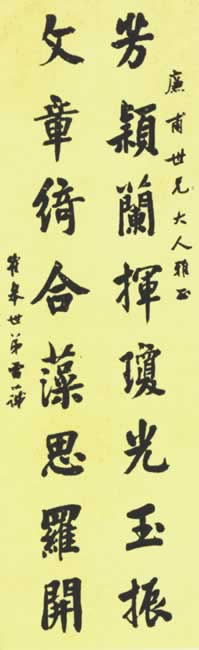 廉甫世兄大人雅正
芳穎蘭揮瓊光玉振
文章綺合藻思羅開
皋世弟